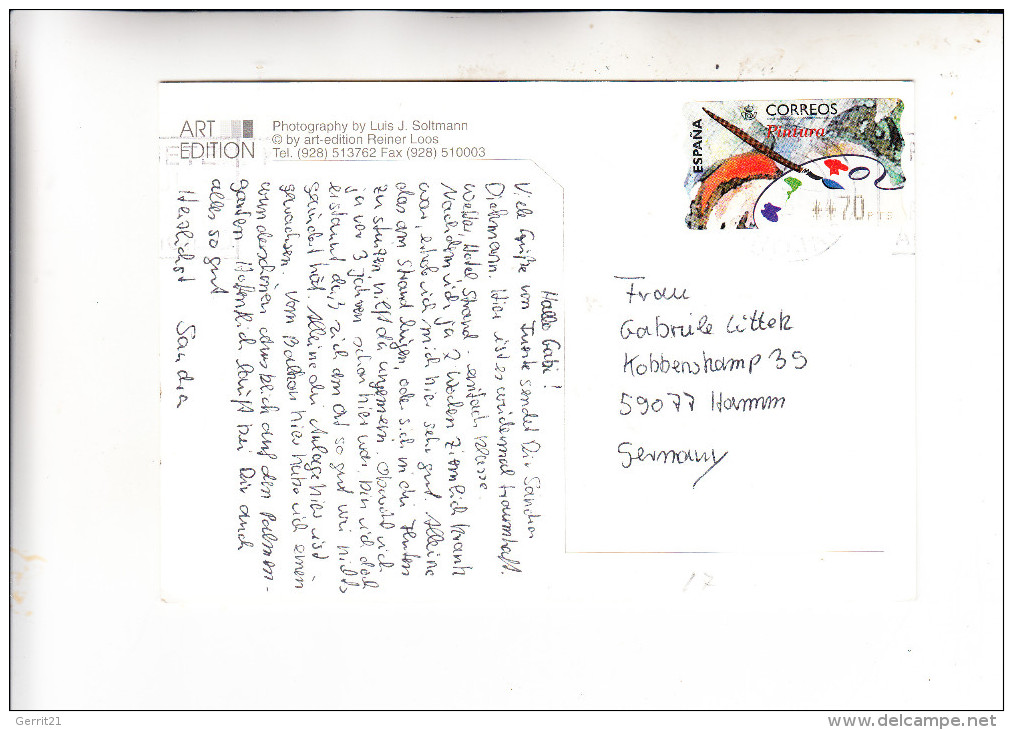 ART
EDITION
Photography by Luis J. Soltmann
© by art-edition Reiner Loos
Tel. (928) 513762 Fax (928) 510003
ESPAÑA
CORREOS
Pintura
**70 PTS
Hallo Gabi!
Viele Grüße von Fuerte sendet Dir Sandra
Diekmann. Hier ist es wiedermal traumhaft.
Wetter, Hotel, Strand - einfach klasse.
Nachdem ich ja 2 Wochen ziemlich krank
war, erhole ich mich hier sehr gut. Alleine
das am Strand liegen, oder sich in die Fluten
zu stürzen, hilft da ungemein. Obwohl ich
ja vor 3 Jahren schon hier war, bin ich doch
erstaunt, daß sich am Ort so gut wie nichts
geändert hat. Alleine die Anlage hier ist
gewachsen. Vom Balkon hier habe ich einen
wunderschönen Ausblick auf den Palmen-
garten. Hoffentlich läuft bei Dir auch
alles so gut
Herzlichst Sandra
Frau
Gabriele Littek
Kobbenskamp 39
59077 Hamm
Germany
17
Gerrit21
www.delcampe.net